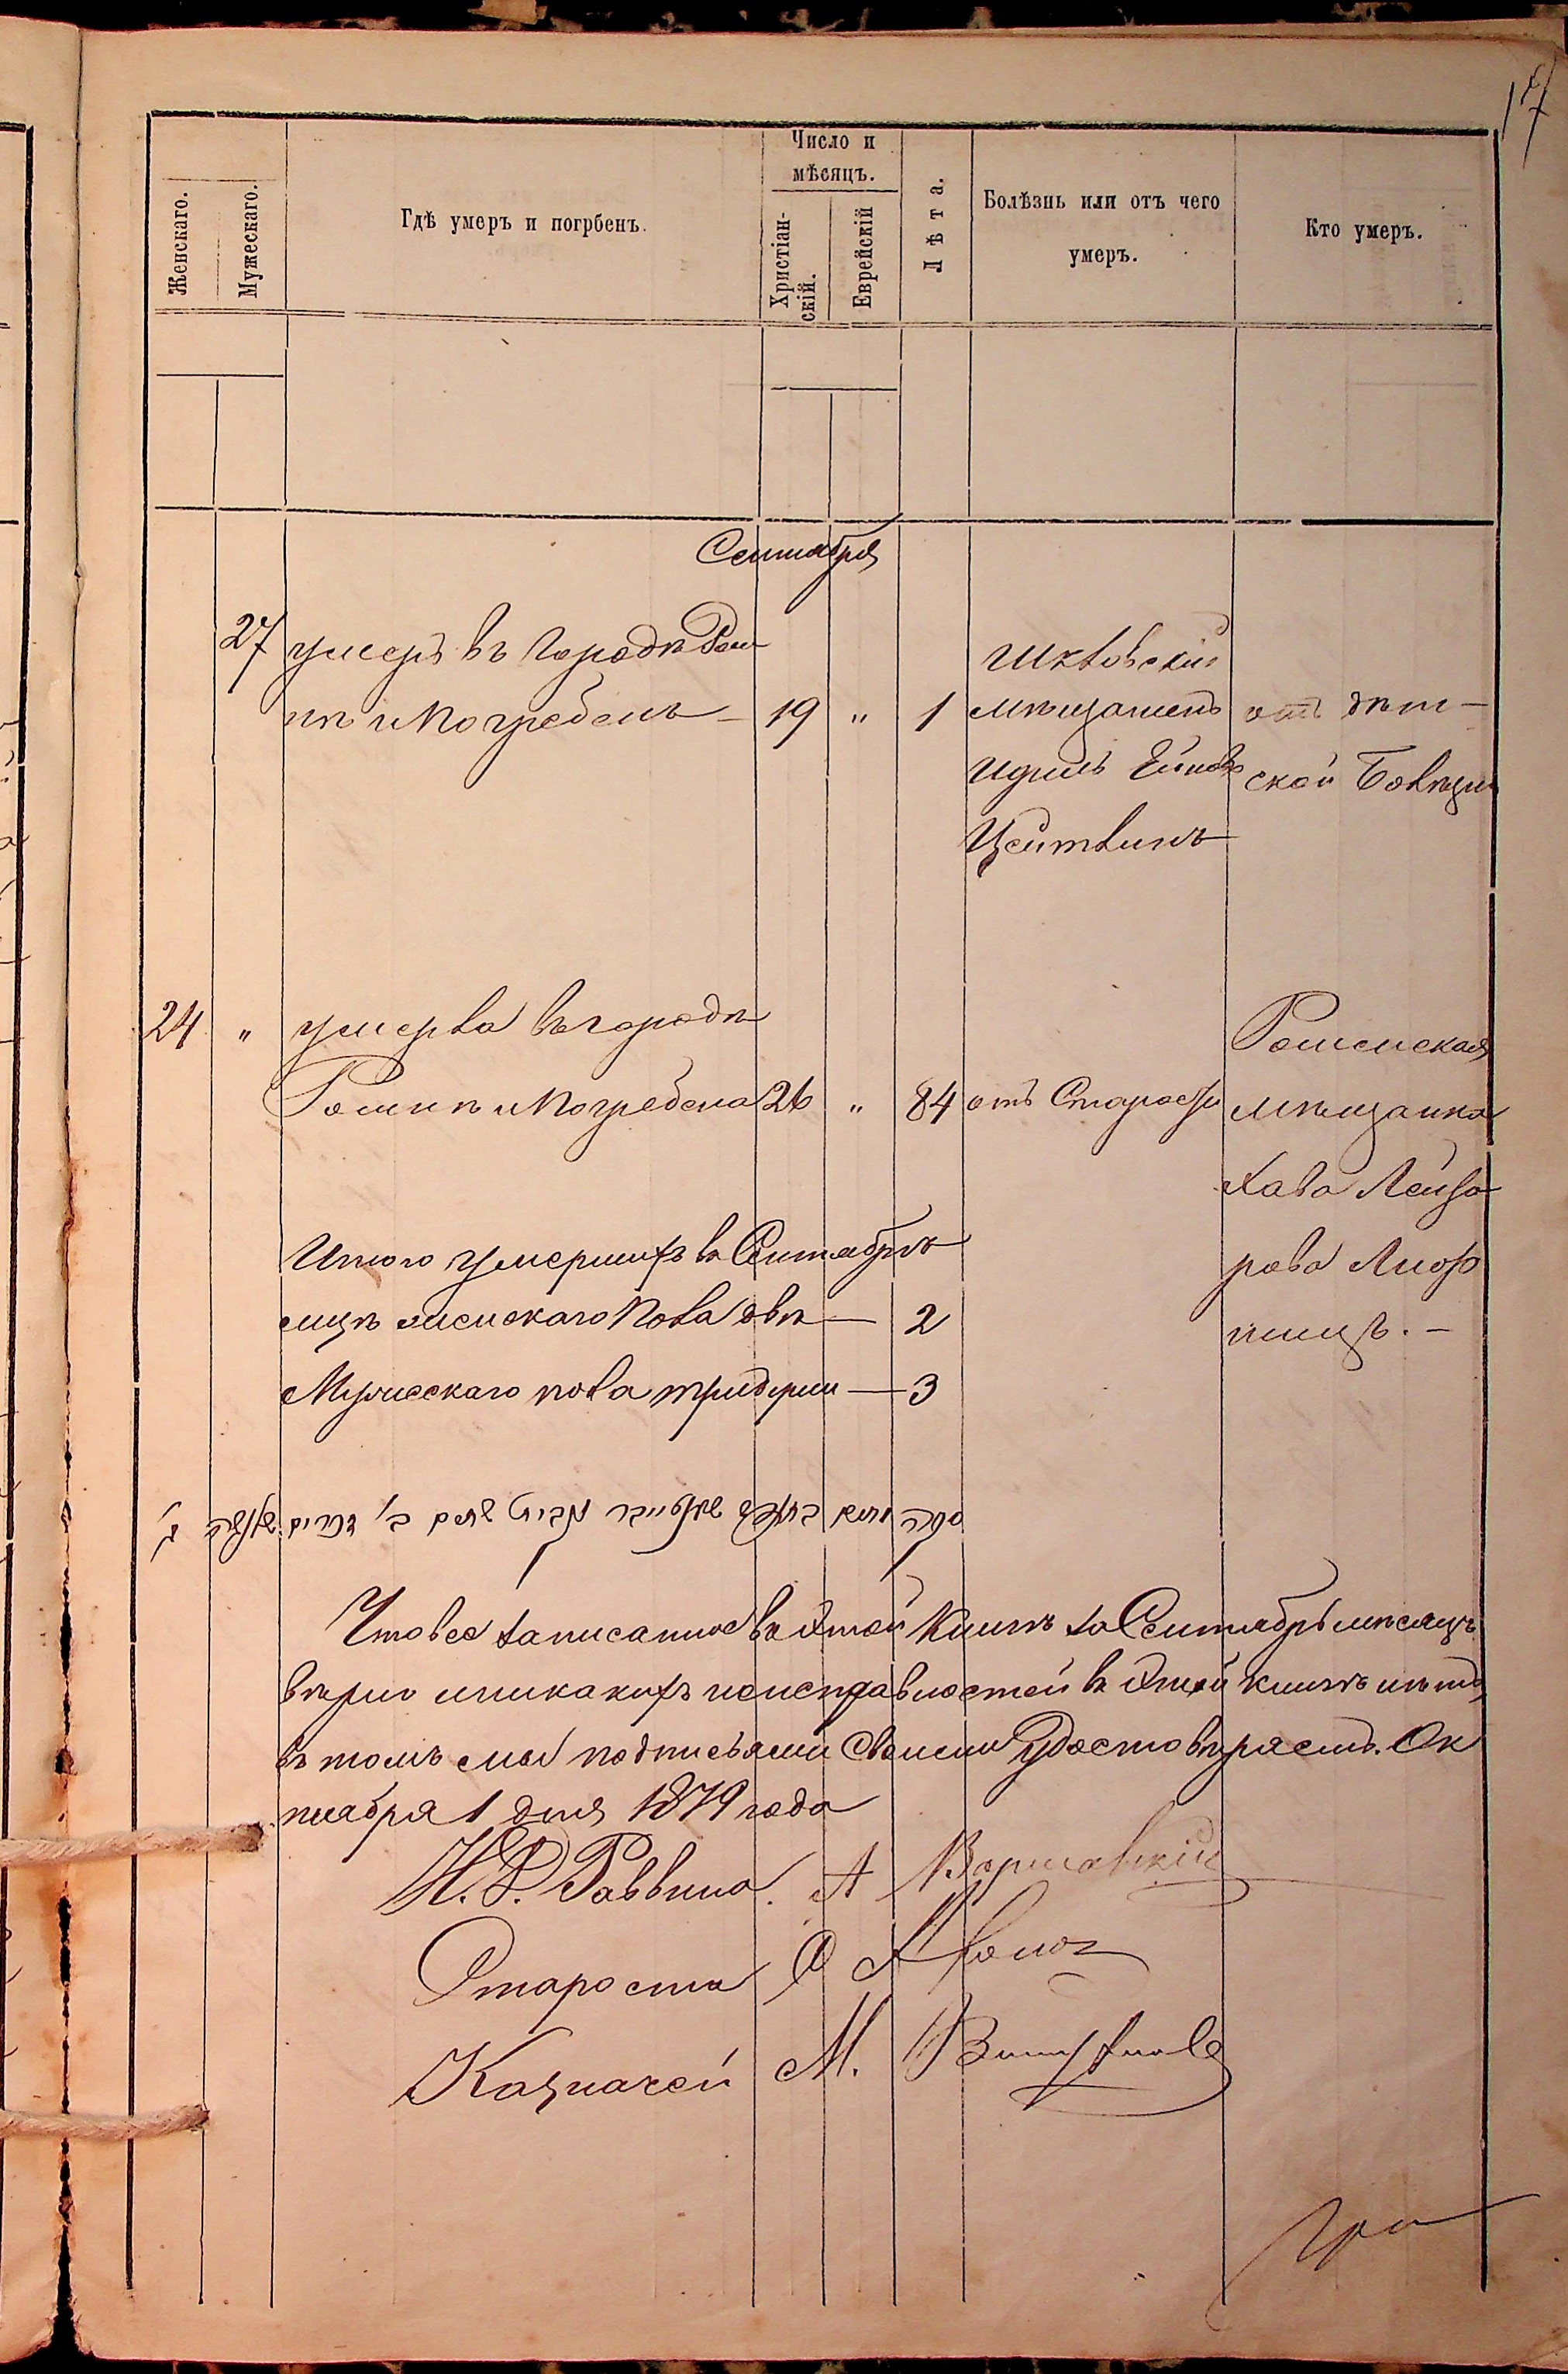 17
Число и
мѣсяцъ.
Женскаго.
Мужескаго.
Гдѣ умеръ и погрбенъ.
Христіан-
скій.
Еврейскій
Лѣта.
Болѣзнь или отъ чего
умеръ.
Кто умеръ.
Сентября
27 умеръ въ городѣ Ром
нѣ и погребенъ – 19 " 1
мѣщанинъ
Цейтлинъ
отъ дѣт–
ской болѣзни
24 " умерла въ городѣ
Ромнѣ и погребена 26 " 84 отъ старости
Роменская
мѣщанка
Хава Лейзе
рова
Итого умершихъ въ Сентябрѣ
мцѣ женскаго пола двѣ — 2
Мужескаго пола три души — 3
Что все записанное въ этой книгѣ за Сентябрь мѣсяцъ
вѣрно и никакихъ неисправностей въ этой книгѣ нѣтъ,
въ томъ мы подписями своими удостовѣряемъ. Ок
тября 1 дня 1879 года
И. Д. Раввина А Варшавскій
Староста
Казначей М.